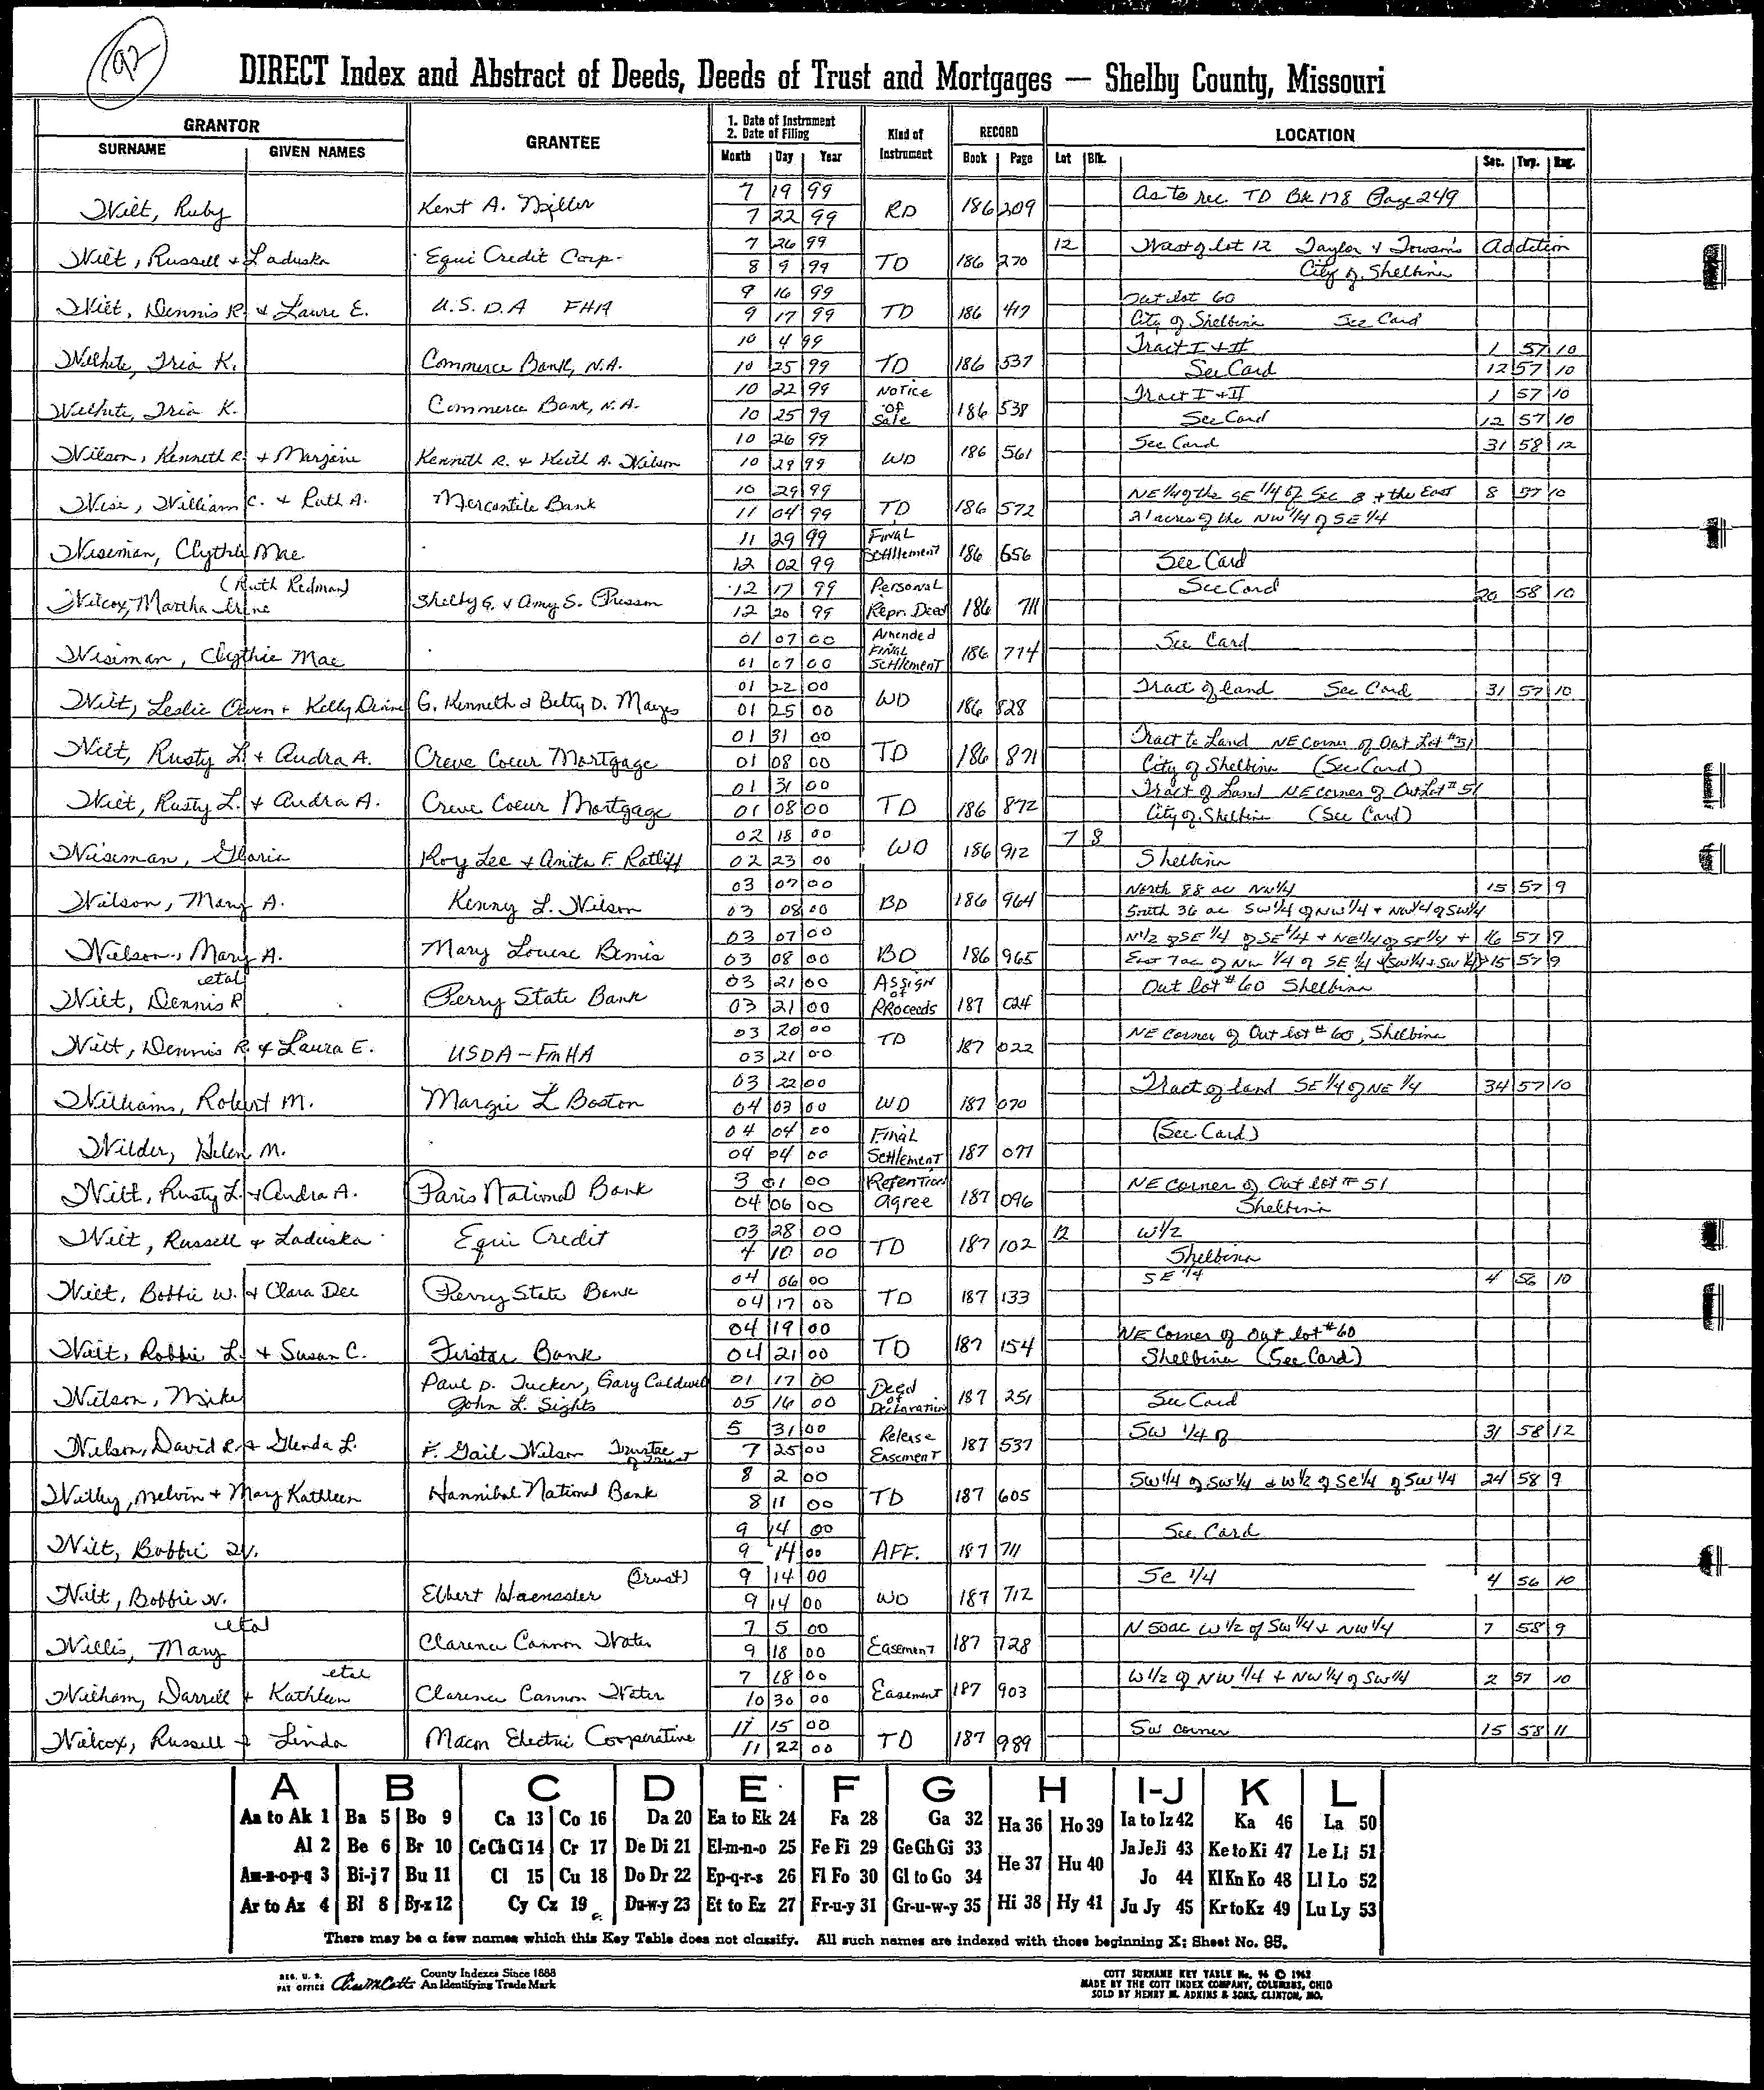 92
DIRECT Index and Abstract of Deeds, Deeds of Trust and Mortgages — Shelby County, Missouri
GRANTOR
SURNAME GIVEN NAMES
GRANTEE
1. Date of Instrument
2. Date of Filing
Month Day Year
Kind of Instrument
RECORD
Book Page
LOCATION
Lot Blk. Sec. Twp. Rng.
Wilt, Ruby Kent A. Miller 7 19 99 RD 186 209 As to rec. TD Bk 178 Page 249
7 22 99
Wilt, Russell & Laduska Equi Credit Corp. 7 26 99 TD 186 270 12 West of lot 12 Taylor & Towson's Addition
8 9 99 City of Shelbina
Wilt, Dennis R. & Laura E. U.S.D.A FHA 9 16 99 TD 186 417 Out lot 60
9 17 99 City of Shelbina See Card
Wilhite, Iria K. Commerce Bank, N.A. 10 4 99 TD 186 537 Tract I + II 1 57 10
10 25 99 See Card 12 57 10
Wilhite, Iria K. Commerce Bank, N.A. 10 22 99 Notice of Sale 186 538 Tract I + II 1 57 10
10 25 99 See Card 12 57 10
Wilson, Kenneth R. & Marjorie Kenneth R. & Keith A. Wilson 10 26 99 WD 186 561 See Card 31 58 12
10 29 99
Wise, William C. & Ruth A. Mercantile Bank 10 29 99 TD 186 572 NE 1/4 of the SE 1/4 of Sec 8 + the East 8 57 10
11 04 99 21 acres of the NW 1/4 of SE 1/4
Wiseman, Clythie Mae 11 29 99 Final Settlement 186 656 See Card
12 02 99
(Ruth Redman)
Wilcox, Martha Irene Shelby G. & Amy S. Presson 12 17 99 Personal Repr. Deed 186 711 See Card 20 58 10
12 20 99
Wiseman, Clythie Mae 01 07 00 Amended Final Settlement 186 714 See Card
01 07 00
Wilt, Leslie Owen + Kelly Diane G. Kenneth & Betty D. Mayes 01 22 00 WD 186 828 Tract of land See Card 31 57 10
01 25 00
Wilt, Rusty L. & Audra A. Creve Coeur Mortgage 01 31 00 TD 186 871 Tract to Land NE Corner of Out Lot #51
01 08 00 City of Shelbina (See Card)
Wilt, Rusty L. & Audra A. Creve Coeur Mortgage 01 31 00 TD 186 872 Tract of Land NE corner of Out Lot #51
01 08 00 City of Shelbina (See Card)
Wiseman, Gloria Roy Lee & Anita F. Ratliff 02 18 00 WD 186 912 7 8
02 23 00 Shelbina
Wilson, Mary A. Kenny L. Wilson 03 07 00 BD 186 964 North 88 ac NW 1/4 15 57 9
03 08 00 South 36 ac SW 1/4 of NW 1/4 + NW 1/4 of SW 1/4
Wilson, Mary A. Mary Louise Bemis 03 07 00 BD 186 965 N 1/2 of SE 1/4 of SE 1/4 + NE 1/4 of SE 1/4 + 16 57 9
03 08 00 East 7 ac of NW 1/4 of SE 1/4 + (SW 1/4 + SW 1/4) 15 57 9
etal
Wilt, Dennis R Perry State Bank 03 21 00 Assign of Proceeds 187 024 Out lot #60 Shelbina
03 21 00
Wilt, Dennis R. & Laura E. USDA-FmHA 03 20 00 TD 187 022 NE Corner of Out lot #60, Shelbina
03 21 00
Williams, Robert M. Margie L Boston 03 22 00 WD 187 070 Tract of land SE 1/4 of NE 1/4 34 57 10
04 03 00
Wilder, Helen M. 04 04 00 Final Settlement 187 077 (See Card)
04 04 00
Wilt, Rusty L. & Audra A. Paris National Bank 3 01 00 Retention Agree 187 096 NE Corner of Out lot #51
04 06 00 Shelbina
Wilt, Russell & Laduska Equi Credit 03 28 00 TD 187 102 12 W 1/2
4 10 00 Shelbina
Wilt, Bobbie W. & Clara Dee Perry State Bank 04 06 00 TD 187 133 SE 1/4 4 56 10
04 17 00
Wait, Robbie L. & Susan C. Firstar Bank 04 19 00 TD 187 154 NE Corner of Out lot #60
04 21 00 Shelbina (See Card)
Wilson, Mike Paul D. Tucker, Gary Caldwell 01 17 00 Deed of Declaration 187 251 See Card
John L. Sights 05 16 00
Wilson, David R. & Glenda L. F. Gail Wilson Trustee of Trust 5 31 00 Release Easement 187 537 SW 1/4 of 31 58 12
7 25 00
Willey, Melvin + Mary Kathleen Hannibal National Bank 8 2 00 TD 187 605 SW 1/4 of SW 1/4 & W 1/2 of SE 1/4 of SW 1/4 24 58 9
8 11 00
Wilt, Bobbie W. 9 14 00 AFF. 187 711 See Card
9 14 00
Wilt, Bobbie W. Elbert Haenssler (Trust) 9 14 00 WD 187 712 SE 1/4 4 56 10
9 14 00
etal
Willis, Mary Clarence Cannon Water 7 5 00 Easement 187 728 N 50ac W 1/2 of SW 1/4 & NW 1/4 7 58 9
9 18 00
etal
Wilham, Darrell & Kathleen Clarence Cannon Water 7 18 00 Easement 187 903 W 1/2 of NW 1/4 + NW 1/4 of SW 1/4 2 57 10
10 30 00
Wilcox, Russell & Linda Macon Electric Cooperative 11 15 00 TD 187 989 SW corner 15 58 11
11 22 00
A B C D E F G H I-J K L
Aa to Ak 1 Ba 5 Bo 9 Ca 13 Co 16 Da 20 Ea to Ek 24 Fa 28 Ga 32 Ha 36 Ho 39 Ia to Iz 42 Ka 46 La 50
Al 2 Be 6 Br 10 Ce Ch Ci 14 Cr 17 De Di 21 El-m-n-o 25 Fe Fi 29 Ge Gh Gi 33 He 37 Hu 40 Ja Je Ji 43 Ke to Ki 47 Le Li 51
Am-n-o-p-q 3 Bi-j 7 Bu 11 Cl 15 Cu 18 Do Dr 22 Ep-q-r-s 26 Fl Fo 30 Gl to Go 34 Jo 44 Kl Kn Ko 48 Ll Lo 52
Ar to Az 4 Bl 8 By-z 12 Cy Cz 19 Du-w-y 23 Et to Ez 27 Fr-u-y 31 Gr-u-w-y 35 Hi 38 Hy 41 Ju Jy 45 Kr to Kz 49 Lu Ly 53
There may be a few names which this Key Table does not classify. All such names are indexed with those beginning X; Sheet No. 95.
REG. U. S. PAT OFFICE County Indexes Since 1888
An Identifying Trade Mark
COTT SURNAME KEY TABLE No. 96 © 1962
MADE BY THE COTT INDEX COMPANY, COLUMBUS, OHIO
SOLD BY HENRY M. ADKINS & SONS, CLINTON, MO.